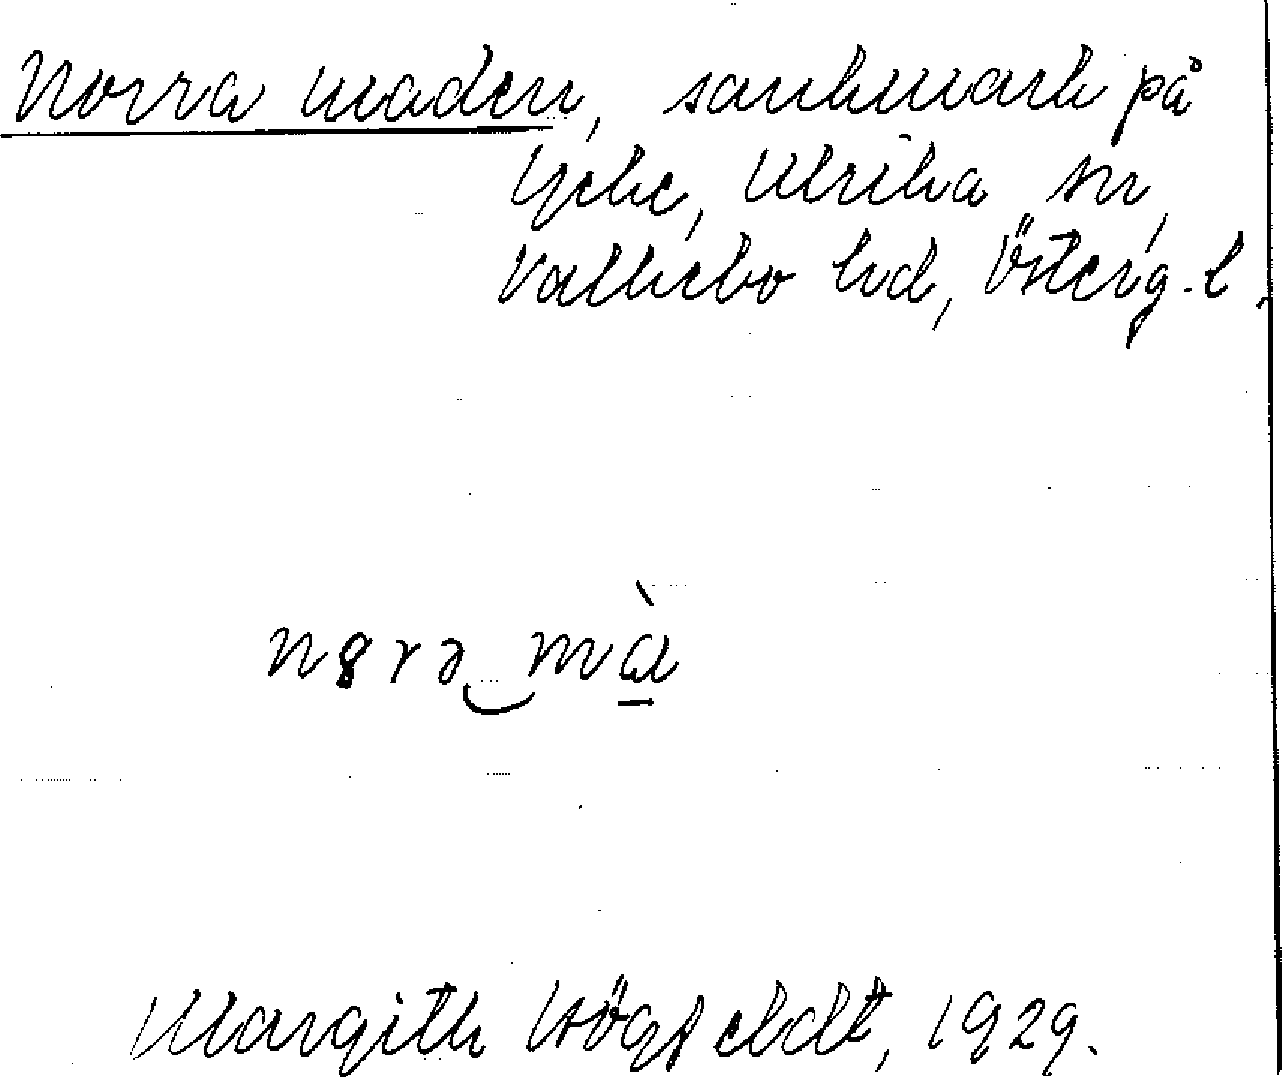 Norra maden, sankmark på
Lycke, Ulrika sn,
Valkebo hd, Österg. l.
n8rə mà
Margith Högfeldt, 1929.